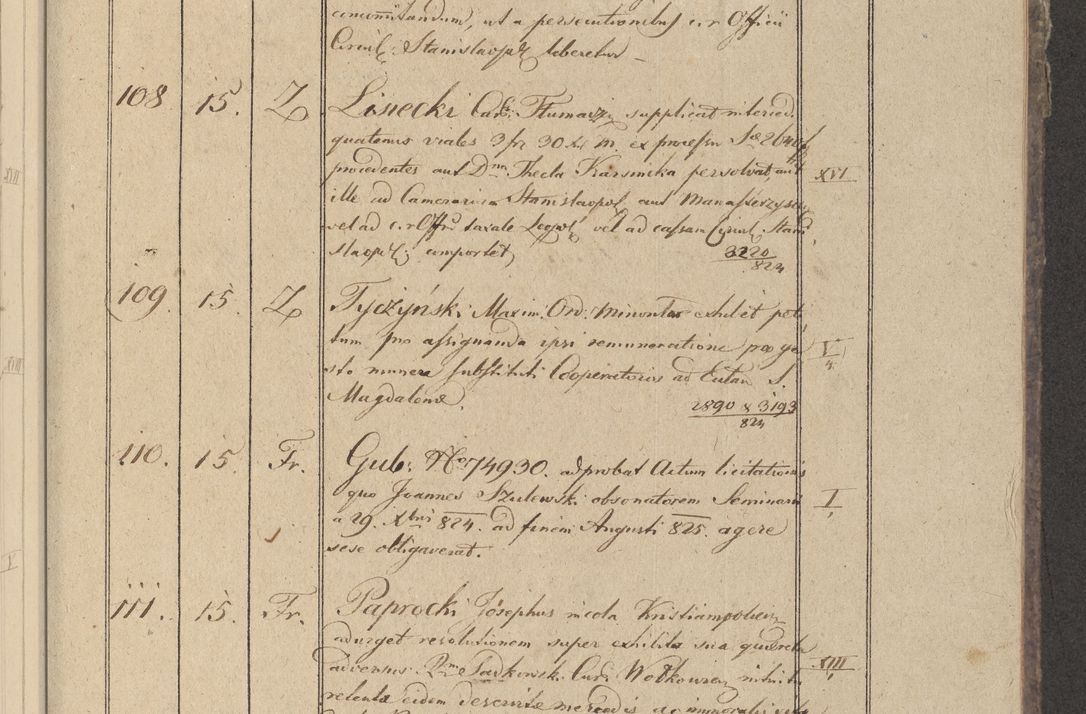 circummittandum, ut a persecutionibus c. r. Officii
Circul. Stanislaop. liberetur
108 15. Z Lisiecki Cur. Tłumacz. supplicat interced.
quatenus viales 3 fr 30 xr M. ex
procedentes aut Dnm Thecla persolvat aut XVI
ille ad Camerariam Stanislaopol. aut Manasterzysc.
vel ad c. r. Offm taxale Leopol. vel ad cassam Circul. Stani
slaopol. comportet 3220
824
109 15. Z Tyczyński Maxim. Ord. Minorita exhibet peti
tum pro assignanda ipsi remuneratione pro ge V
4.
sto munere substituti Cooperatoris ad S.
Magdalenae. 2890 & 3193
824
110. 15. Fr. Gub. No 74930. adprobat Actum licitationis
quo Joannes Szulewski obsonatorem Seminarii I
a 29. Xbris 824. ad finem Augusti 825. agere
sese obligaverat.
111. 15. Fr. Paprocki Josephus incola
adurget resolutionem super exhibita sua querela
adversus Rmo Sadkowski Cur. Wołkowien. XIII
eidem mercedis